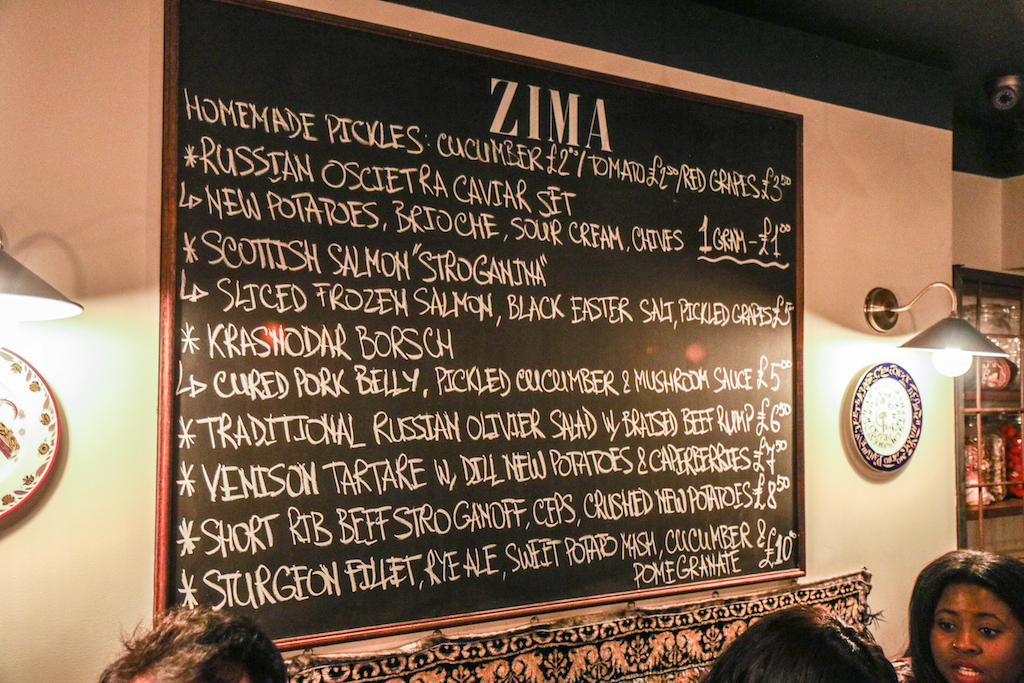 ZIMA
HOMEMADE PICKLES: CUCUMBER £2⁰⁰/ TOMATO £2⁵⁰/RED GRAPES £3⁵⁰
*RUSSIAN OSCIETRA CAVIAR SET
↳ NEW POTATOES, BRIOCHE, SOUR CREAM, CHIVES 1 GRAM - £1⁰⁰
* SCOTTISH SALMON "STROGANINA"
↳ SLICED FROZEN SALMON, BLACK EASTER SALT, PICKLED GRAPES £5
* KRASNODAR BORSCH
↳ CURED PORK BELLY, PICKLED CUCUMBER & MUSHROOM SAUCE £5⁰⁰
* TRADITIONAL RUSSIAN OLIVIER SALAD W/ BRAISED BEEF RUMP £6⁵⁰
* VENISON TARTARE W/ DILL NEW POTATOES & CAPERBERRIES £7⁵⁰
* SHORT RIB BEEF STROGANOFF, CEPS, CRUSHED NEW POTATOES £8⁵⁰
* STURGEON FILLET, RYE ALE, SWEET POTATO MASH, CUCUMBER & £10
POMEGRANATE